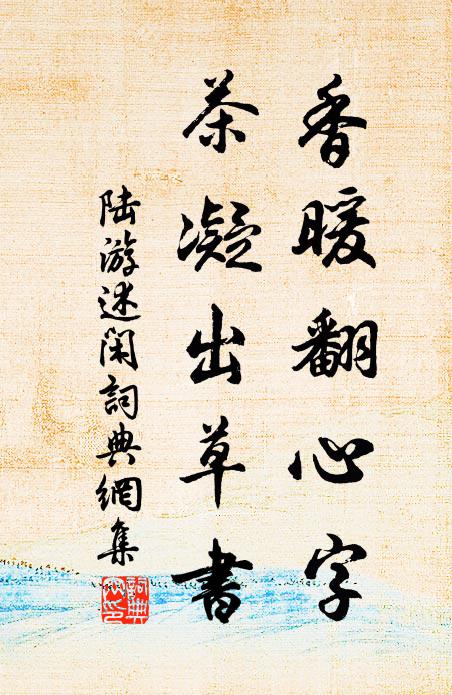 香暖翻心字
茶凝出草書
陆游述闲詞典網集